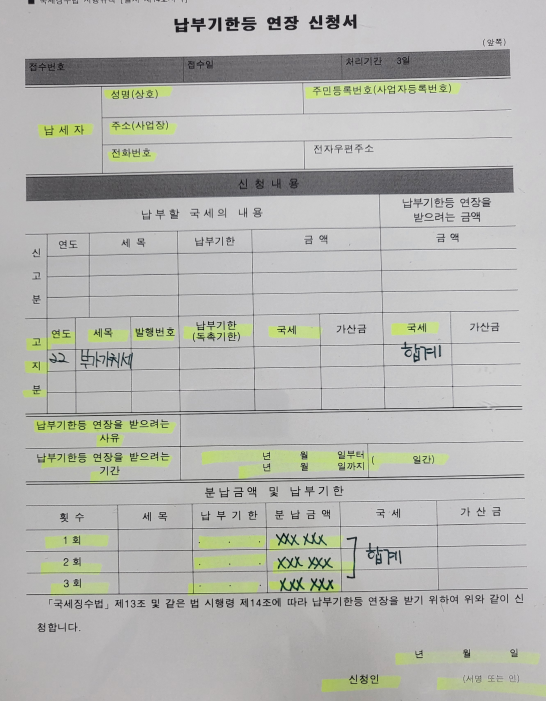 납부기한등 연장 신청서
(앞쪽)
접수번호 접수일 처리기간 3일
납세자 성명(상호) 주민등록번호(사업자등록번호)
주소(사업장)
전화번호 전자우편주소
신청내용
납부할 국세의 내용 납부기한등 연장을 받으려는 금액
신고분 연도 세목 납부기한 금액 금액
고지분 연도 세목 발행번호 납부기한(독촉기한) 국세 가산금 국세 가산금
22 부가가치세 합계
납부기한등 연장을 받으려는 사유
납부기한등 연장을 받으려는 기간 년 월 일부터 ( 일간)
년 월 일까지
분납금액 및 납부기한
횟수 세목 납부기한 분납금액 국세 가산금
1회 . . . XXX XXX
2회 . . . XXX XXX 합계
3회 . . . XXX XXX
「국세징수법」제13조 및 같은 법 시행령 제14조에 따라 납부기한등 연장을 받기 위하여 위와 같이 신
청합니다.
년 월 일
신청인 (서명 또는 인)